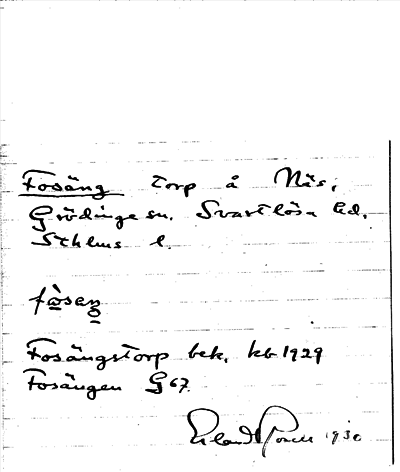 Fosäng torp å Näs,
Grödinge sn. Svartlösa hd.
Sthlms l.
fòsеŋ
Fosängstorp bek. kb 1929
Fosängen G 67.
Erland 1930